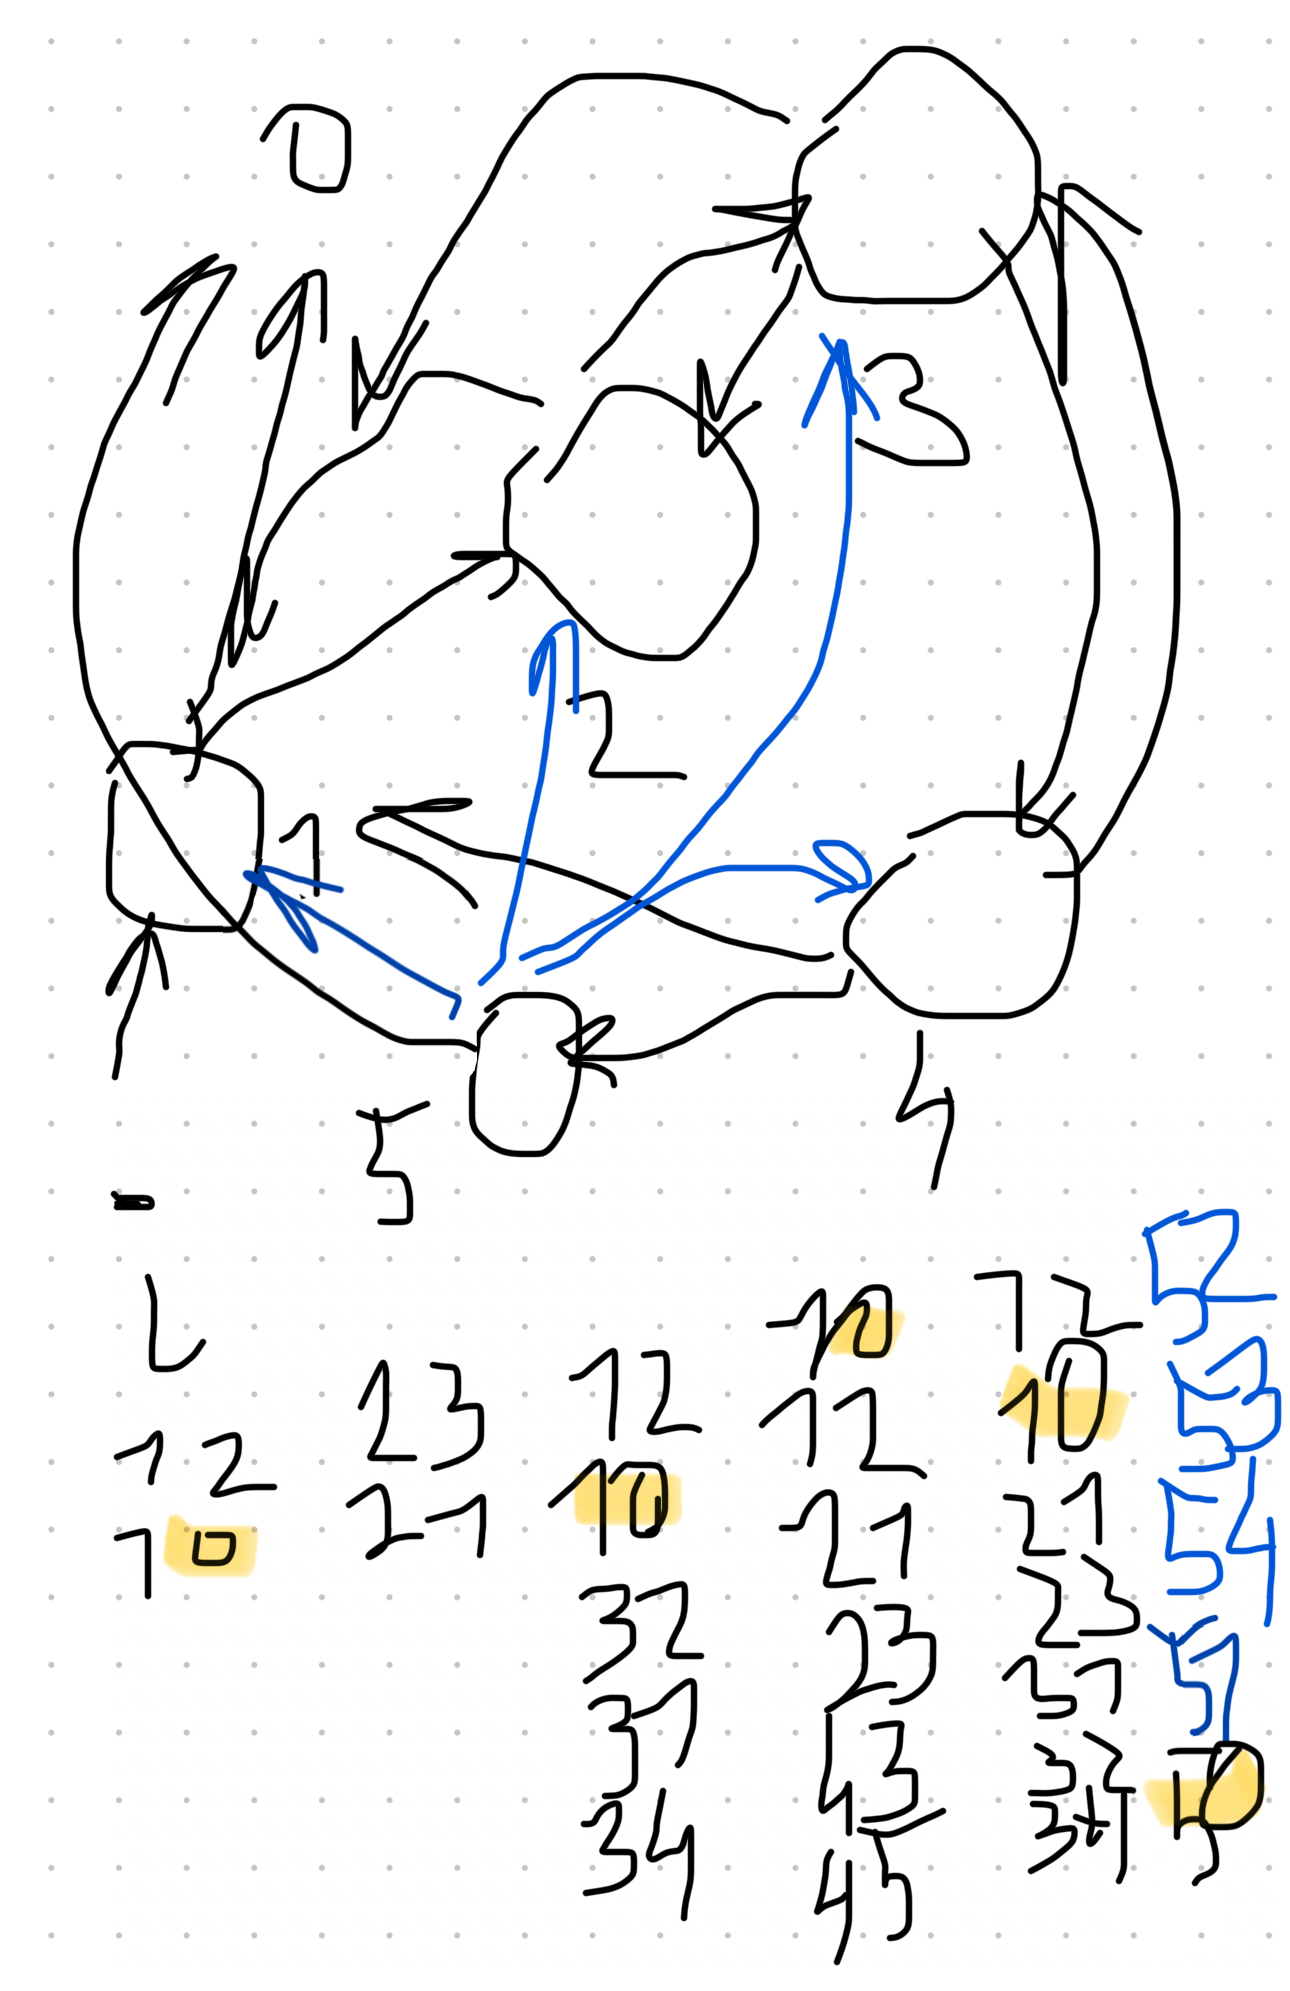 0
3
2
1
4
5
-
L
12
10
23
21
12
10
32
31
34
10
12
21
23
43
45
12
10
21
23
31
32
34
52
53
54
51
50